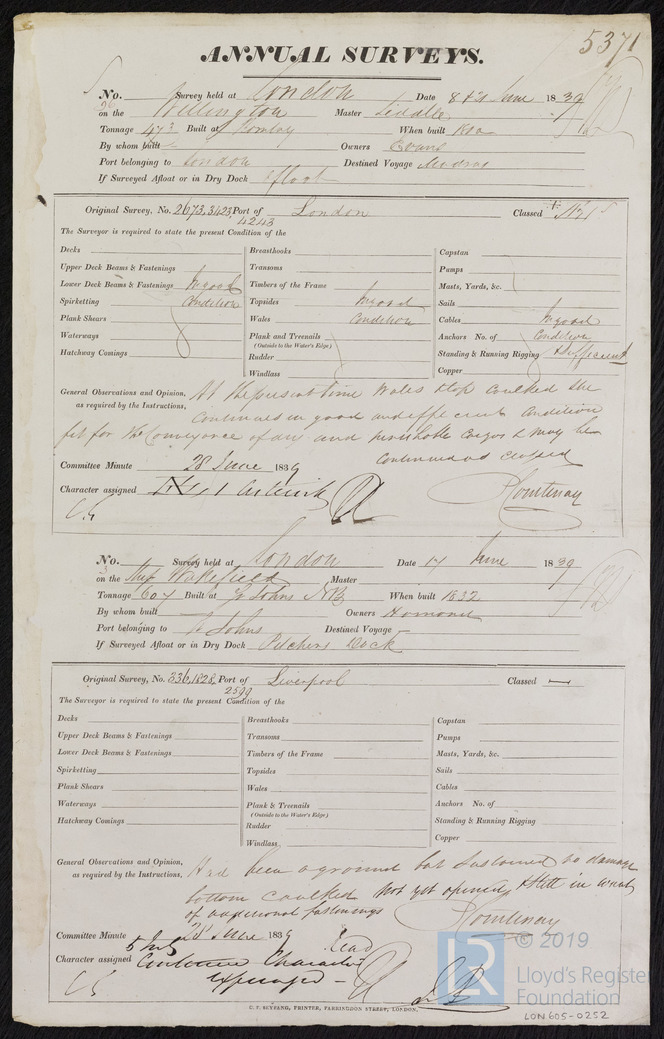 5371
ANNUAL SURVEYS.
No. 96 Survey held at London Date 8 & 21 June 1839
on the Wellington Master Liddle
Tonnage 473 Built at Bombay When built
By whom built - Owners Evans
Port belonging to London Destined Voyage Madras
If Surveyed Afloat or in Dry Dock Afloat
Original Survey, No. 2673,3423, Port of London Classed
4243
The Surveyor is required to state the present Condition of the
Decks
Upper Deck Beams & Fastenings
Lower Deck Beams & Fastenings In good
Spirketting Condition
Plank Shears
Waterways
Hatchway Comings
Breasthooks
Transoms
Timbers of the Frame
Topsides In good
Wales Condition
Plank and Treenails
(Outside to the Water's Edge.)
Rudder
Windlass
Capstan
Pumps
Masts, Yards, &c.
Sails
Cables In good
Anchors No. of Condition
Standing & Running Rigging & sufficient
Copper
General Observations and Opinion, At the present time Wales & top caulked She
as required by the Instructions, continues in good and efficient condition
fit for the Conveyance of dry and perishable cargo & may be
continued as classed
Committee Minute 28 June 1839
Character assigned
Courtenay
No. 3 Survey held at London Date 17 June 1839
on the Ship Wakefield Master
Tonnage 604 Built at St Johns NB When built 1832
By whom built Owners
Port belonging to St Johns Destined Voyage
If Surveyed Afloat or in Dry Dock Pitchers Dock
Original Survey, No. 336,1828, Port of Liverpool Classed —
2599
The Surveyor is required to state the present Condition of the
Decks
Upper Deck Beams & Fastenings
Lower Deck Beams & Fastenings
Spirketting
Plank Shears
Waterways
Hatchway Comings
Breasthooks
Transoms
Timbers of the Frame
Topsides
Wales
Plank & Treenails
(Outside to the Water's Edge.)
Rudder
Windlass
Capstan
Pumps
Masts, Yards, &c.
Sails
Cables
Anchors No. of
Standing & Running Rigging
Copper
General Observations and Opinion, Had been aground but sustained no damage
as required by the Instructions, bottom caulked Not yet opened & Still in want
of additional fastenings
Courtenay
Committee Minute 28 June 1839
Character assigned Character
expunged
C. F. SEYFANG, PRINTER, FARRINGDON STREET, LONDON.
LR
© 2019
Lloyd's Register
Foundation
LON605-0252